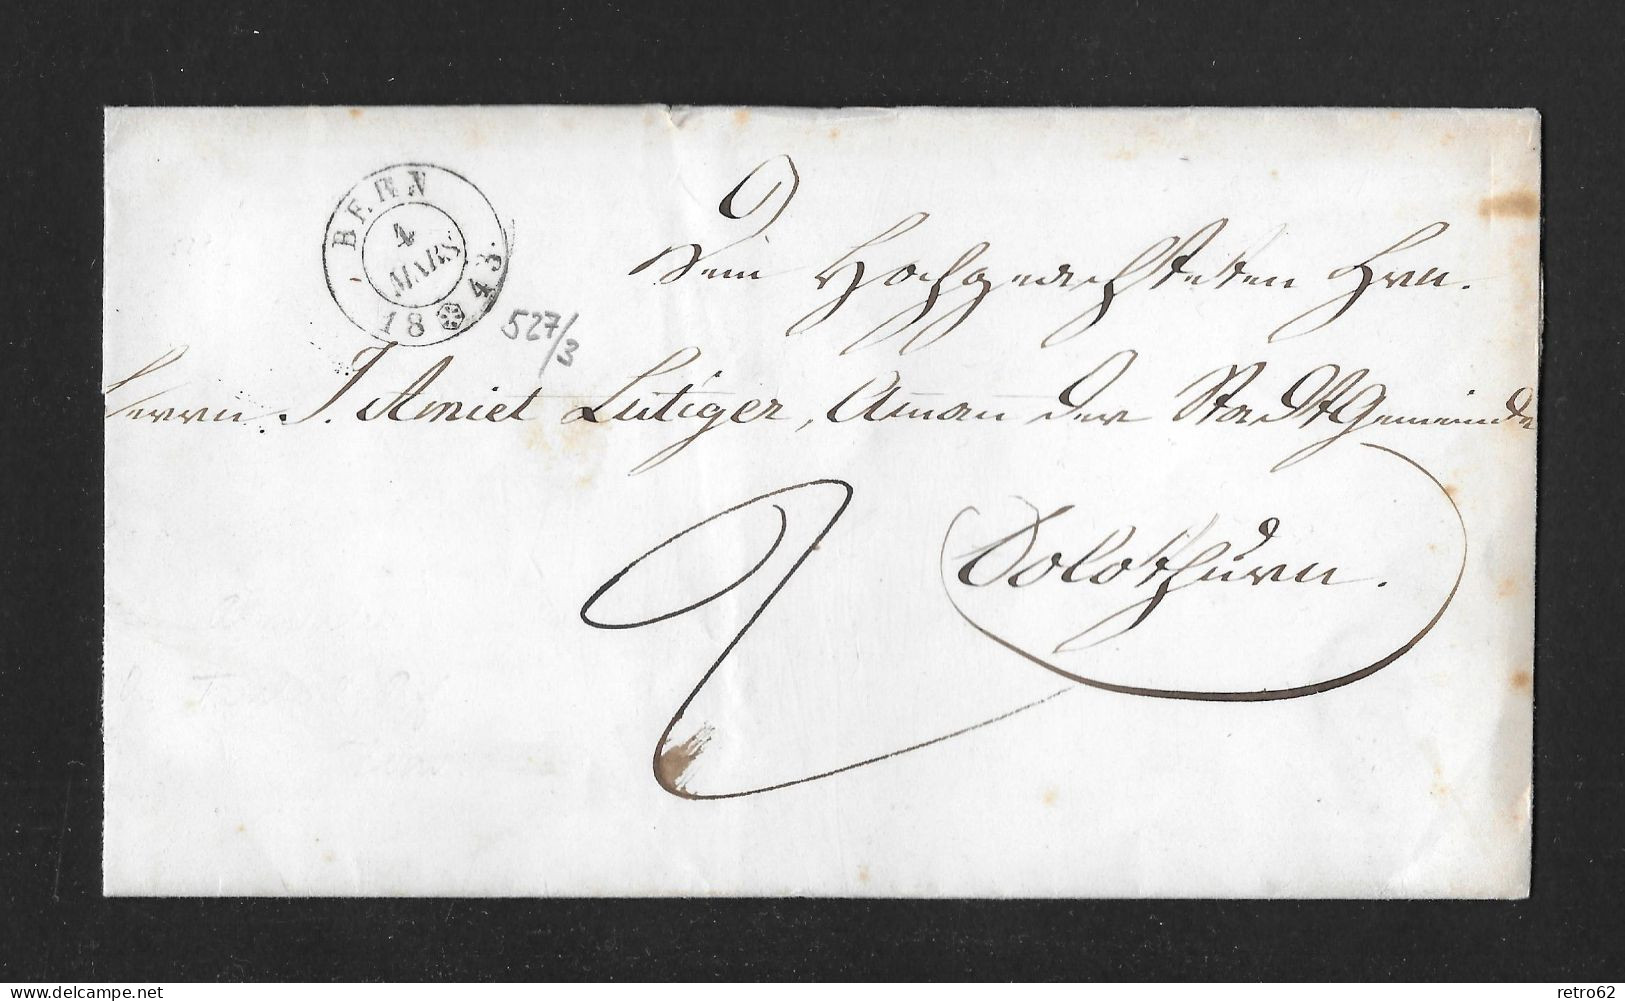 BERN
4
MARS.
18 43.
527/3
Dem Hochgeachteten Hrn.
Herrn J. Amiet Lutiger, Aman̄ der StadtGemeinde
Solothurn.
delcampe.net
retro62